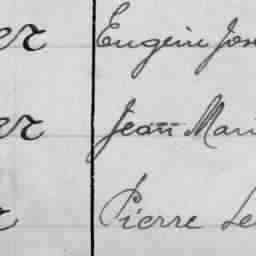 er Eugène Jos
er Jean Mari
r Pierre Le